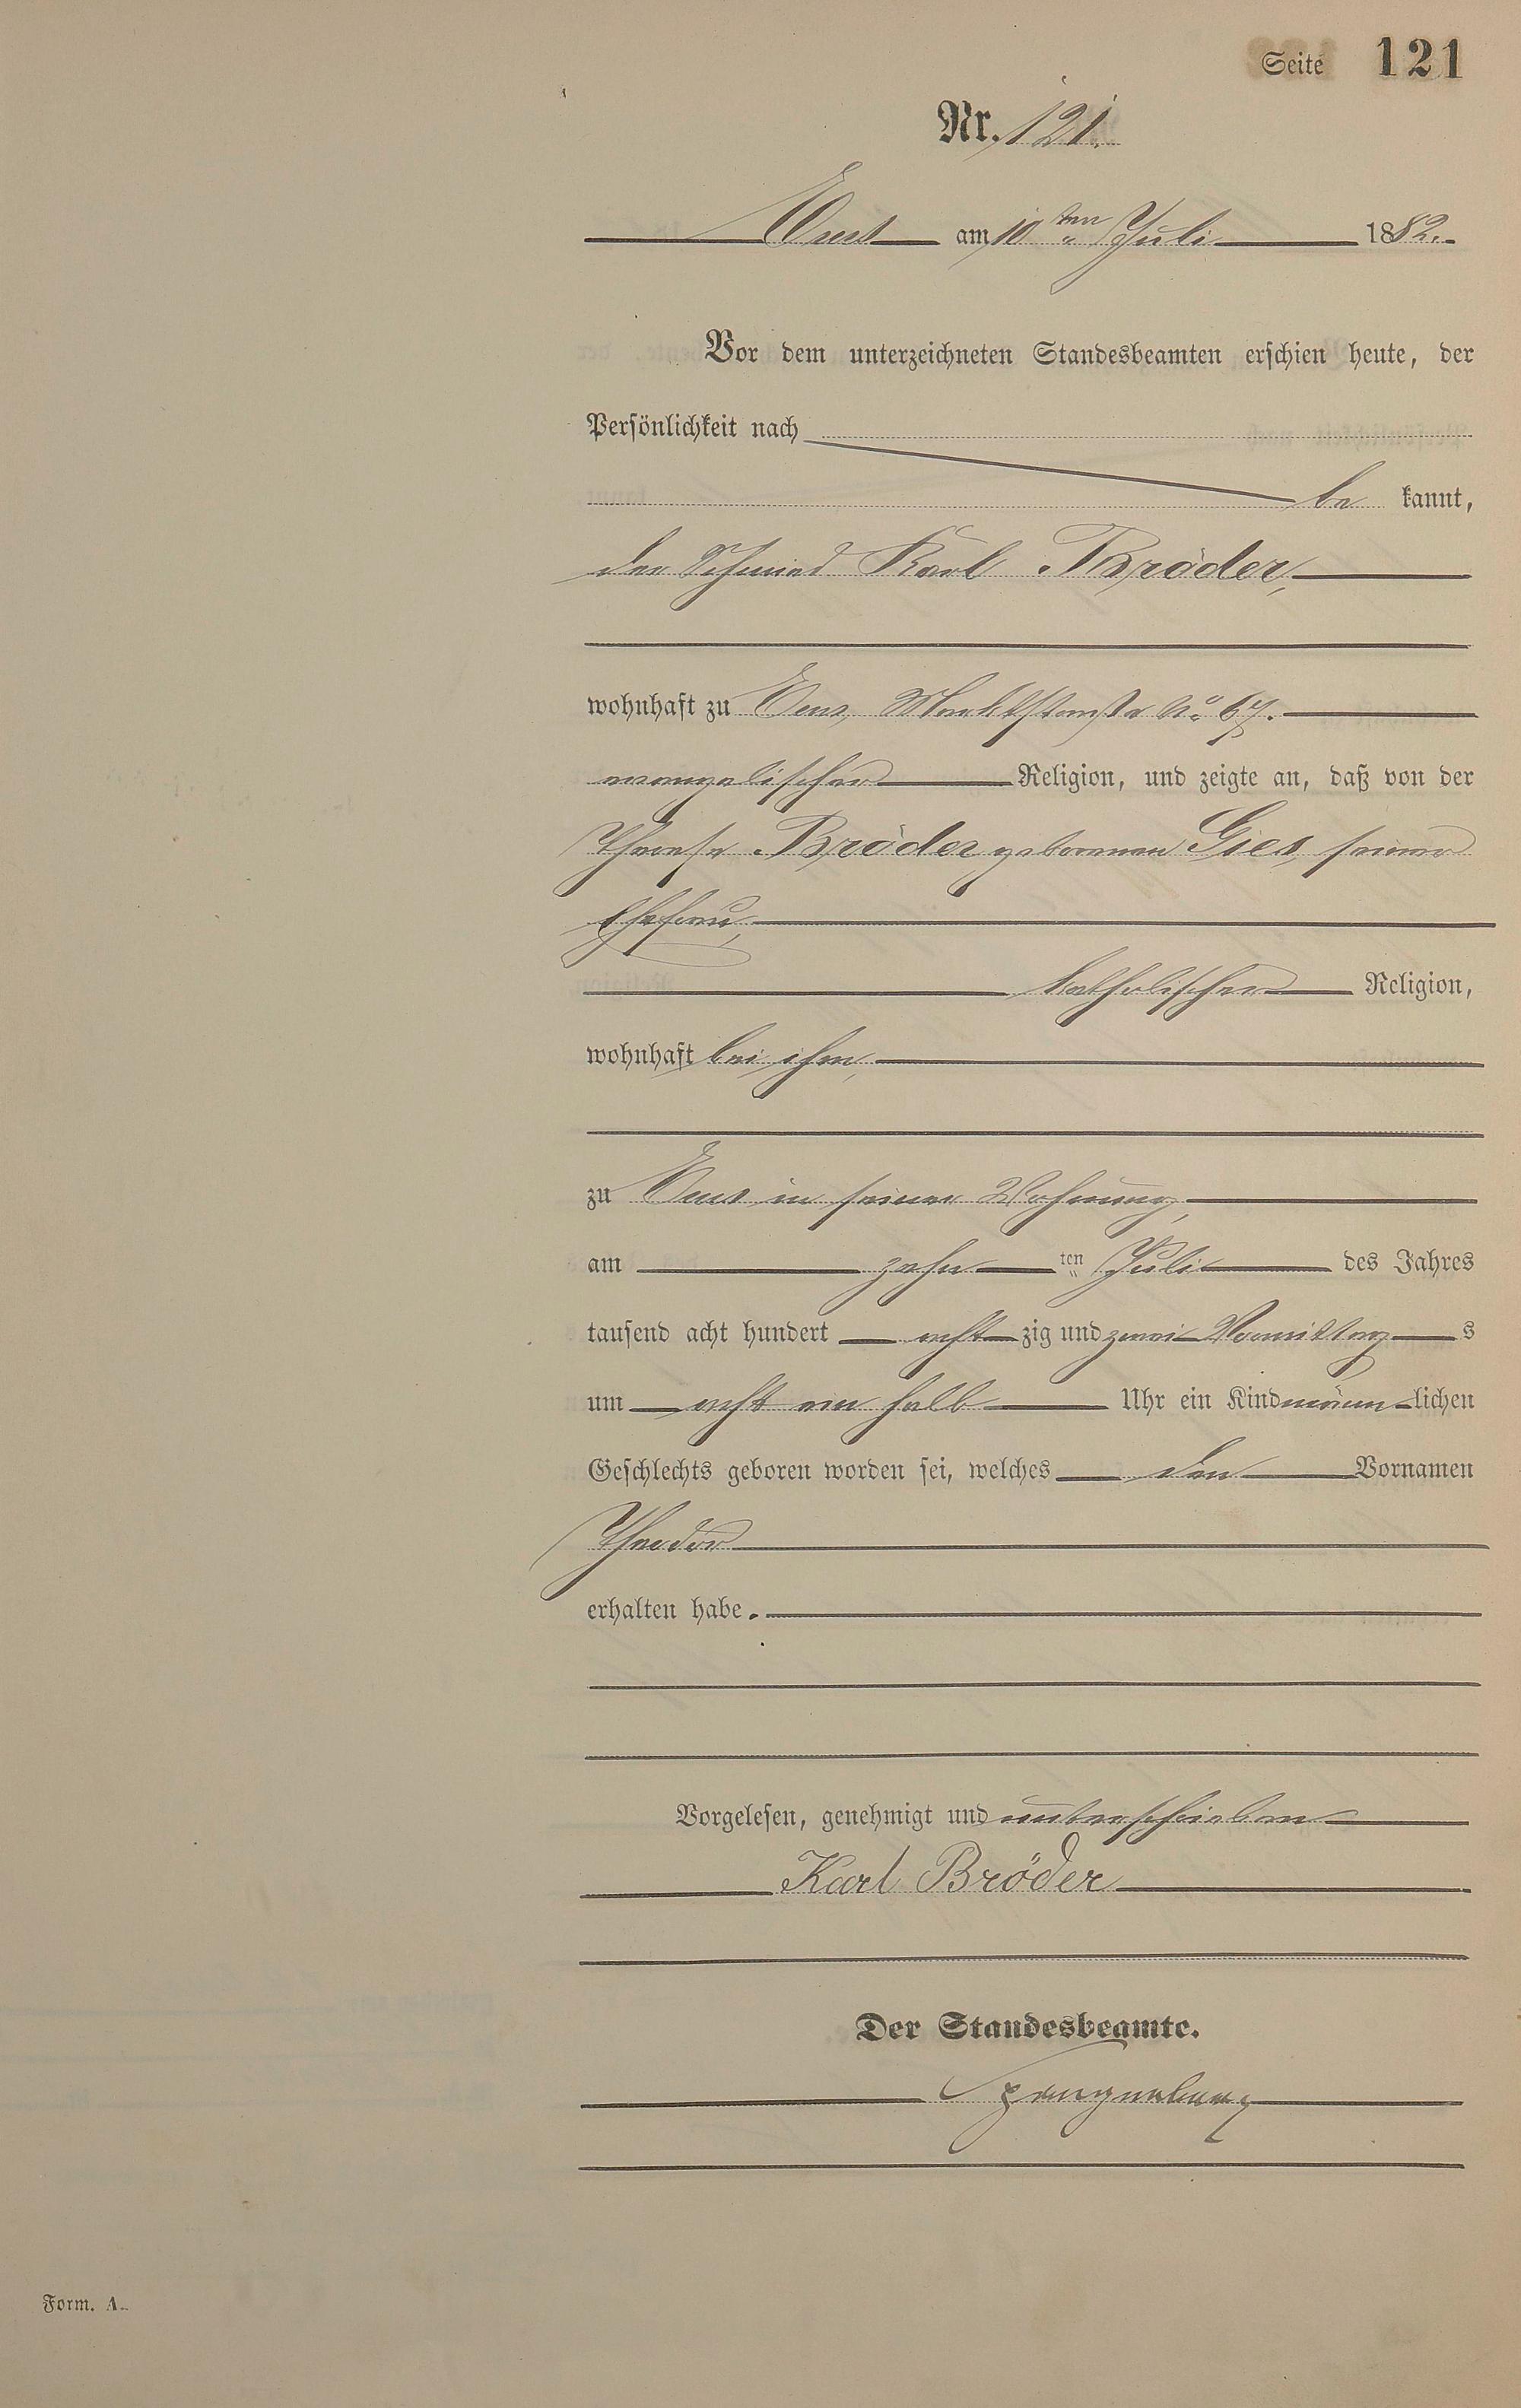 Seite 121
Nr. 121.
Ems am 10ten Juli 1882.
Vor dem unterzeichneten Standesbeamten erschien heute, der
Persönlichkeit nach
be kannt,
der Schmied Karl Bröder,
wohnhaft zu Ems, Marktstraße No. 67.
evangelischer Religion, und zeigte an, daß von der
Therese Bröder geborenen Gies, seiner
Ehefrau,
katholischer Religion,
wohnhaft bei ihm,
zu Ems in seiner Wohnung,
am zehn ten Juli des Jahres
tausend acht hundert acht zig und zwei Vormittag s
um acht ein halb Uhr ein Kind männ lichen
Geschlechts geboren worden sei, welches den Vornamen
Theodor
erhalten habe.
Vorgelesen, genehmigt und unterschrieben
Karl Bröder
Der Standesbeamte.
Spangenberg
Form. A.